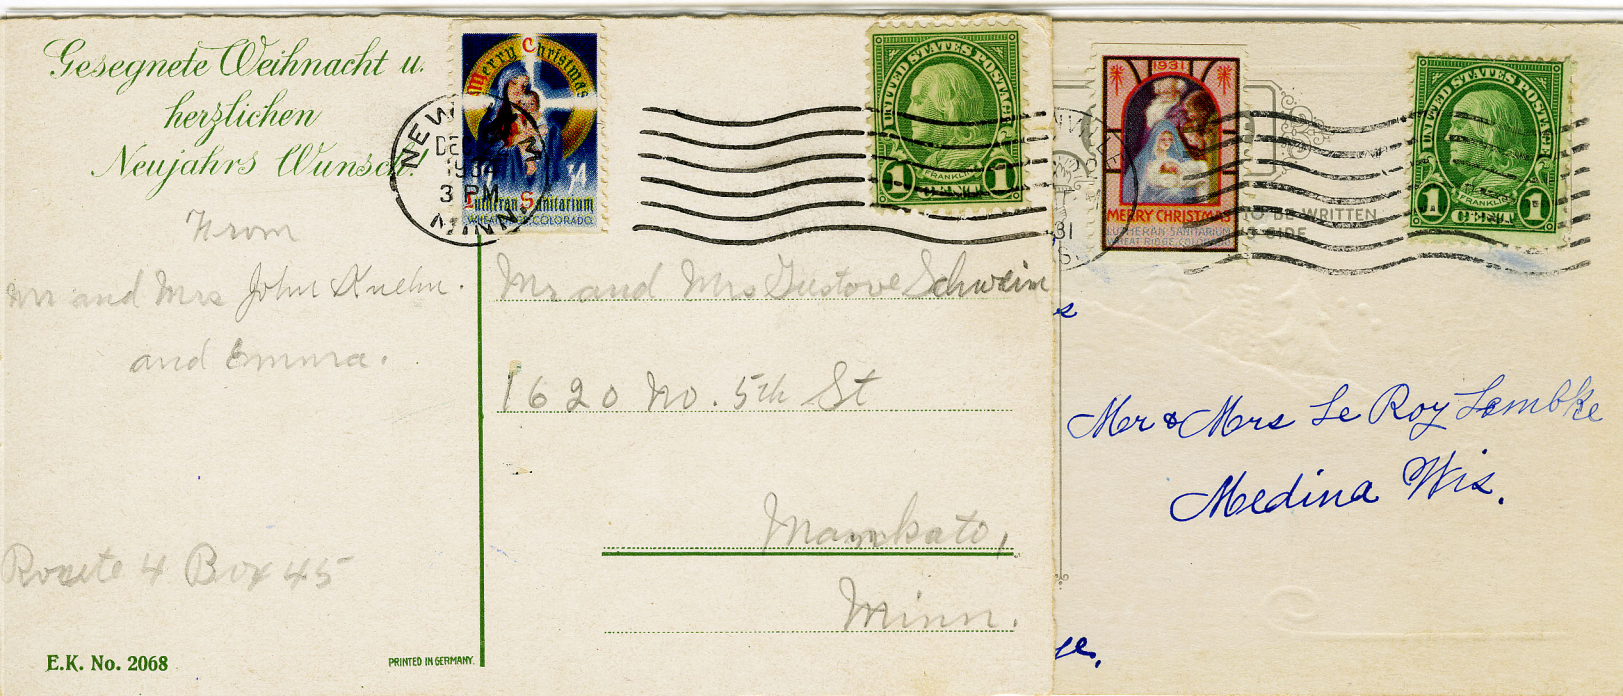 Gesegnete Weihnacht u.
herzlichen
Neujahrs Wunsch!
From
Mr and Mrs John Kuehn.
and Emma.
Route 4 Box 45
E.K. No. 2068
PRINTED IN GERMANY.
Merry Christmas
34
Lutheran Sanitarium
WHEAT RIDGE, COLORADO
NEW
DEC
1934
3 PM
MINN.
UNITED STATES POSTAGE
FRANKLIN
1 CENT 1
Mr and Mrs Gustove Schwein
1620 No. 5th St
Mankato,
Minn.
1931
MERRY CHRISTMAS
LUTHERAN SANITARIUM
WHEAT RIDGE, COLORADO
TO BE WRITTEN
SIDE
31
S.
UNITED STATES POSTAGE
FRANKLIN
1 CENT 1
Mr & Mrs Le Roy Lembke
Medina Wis.